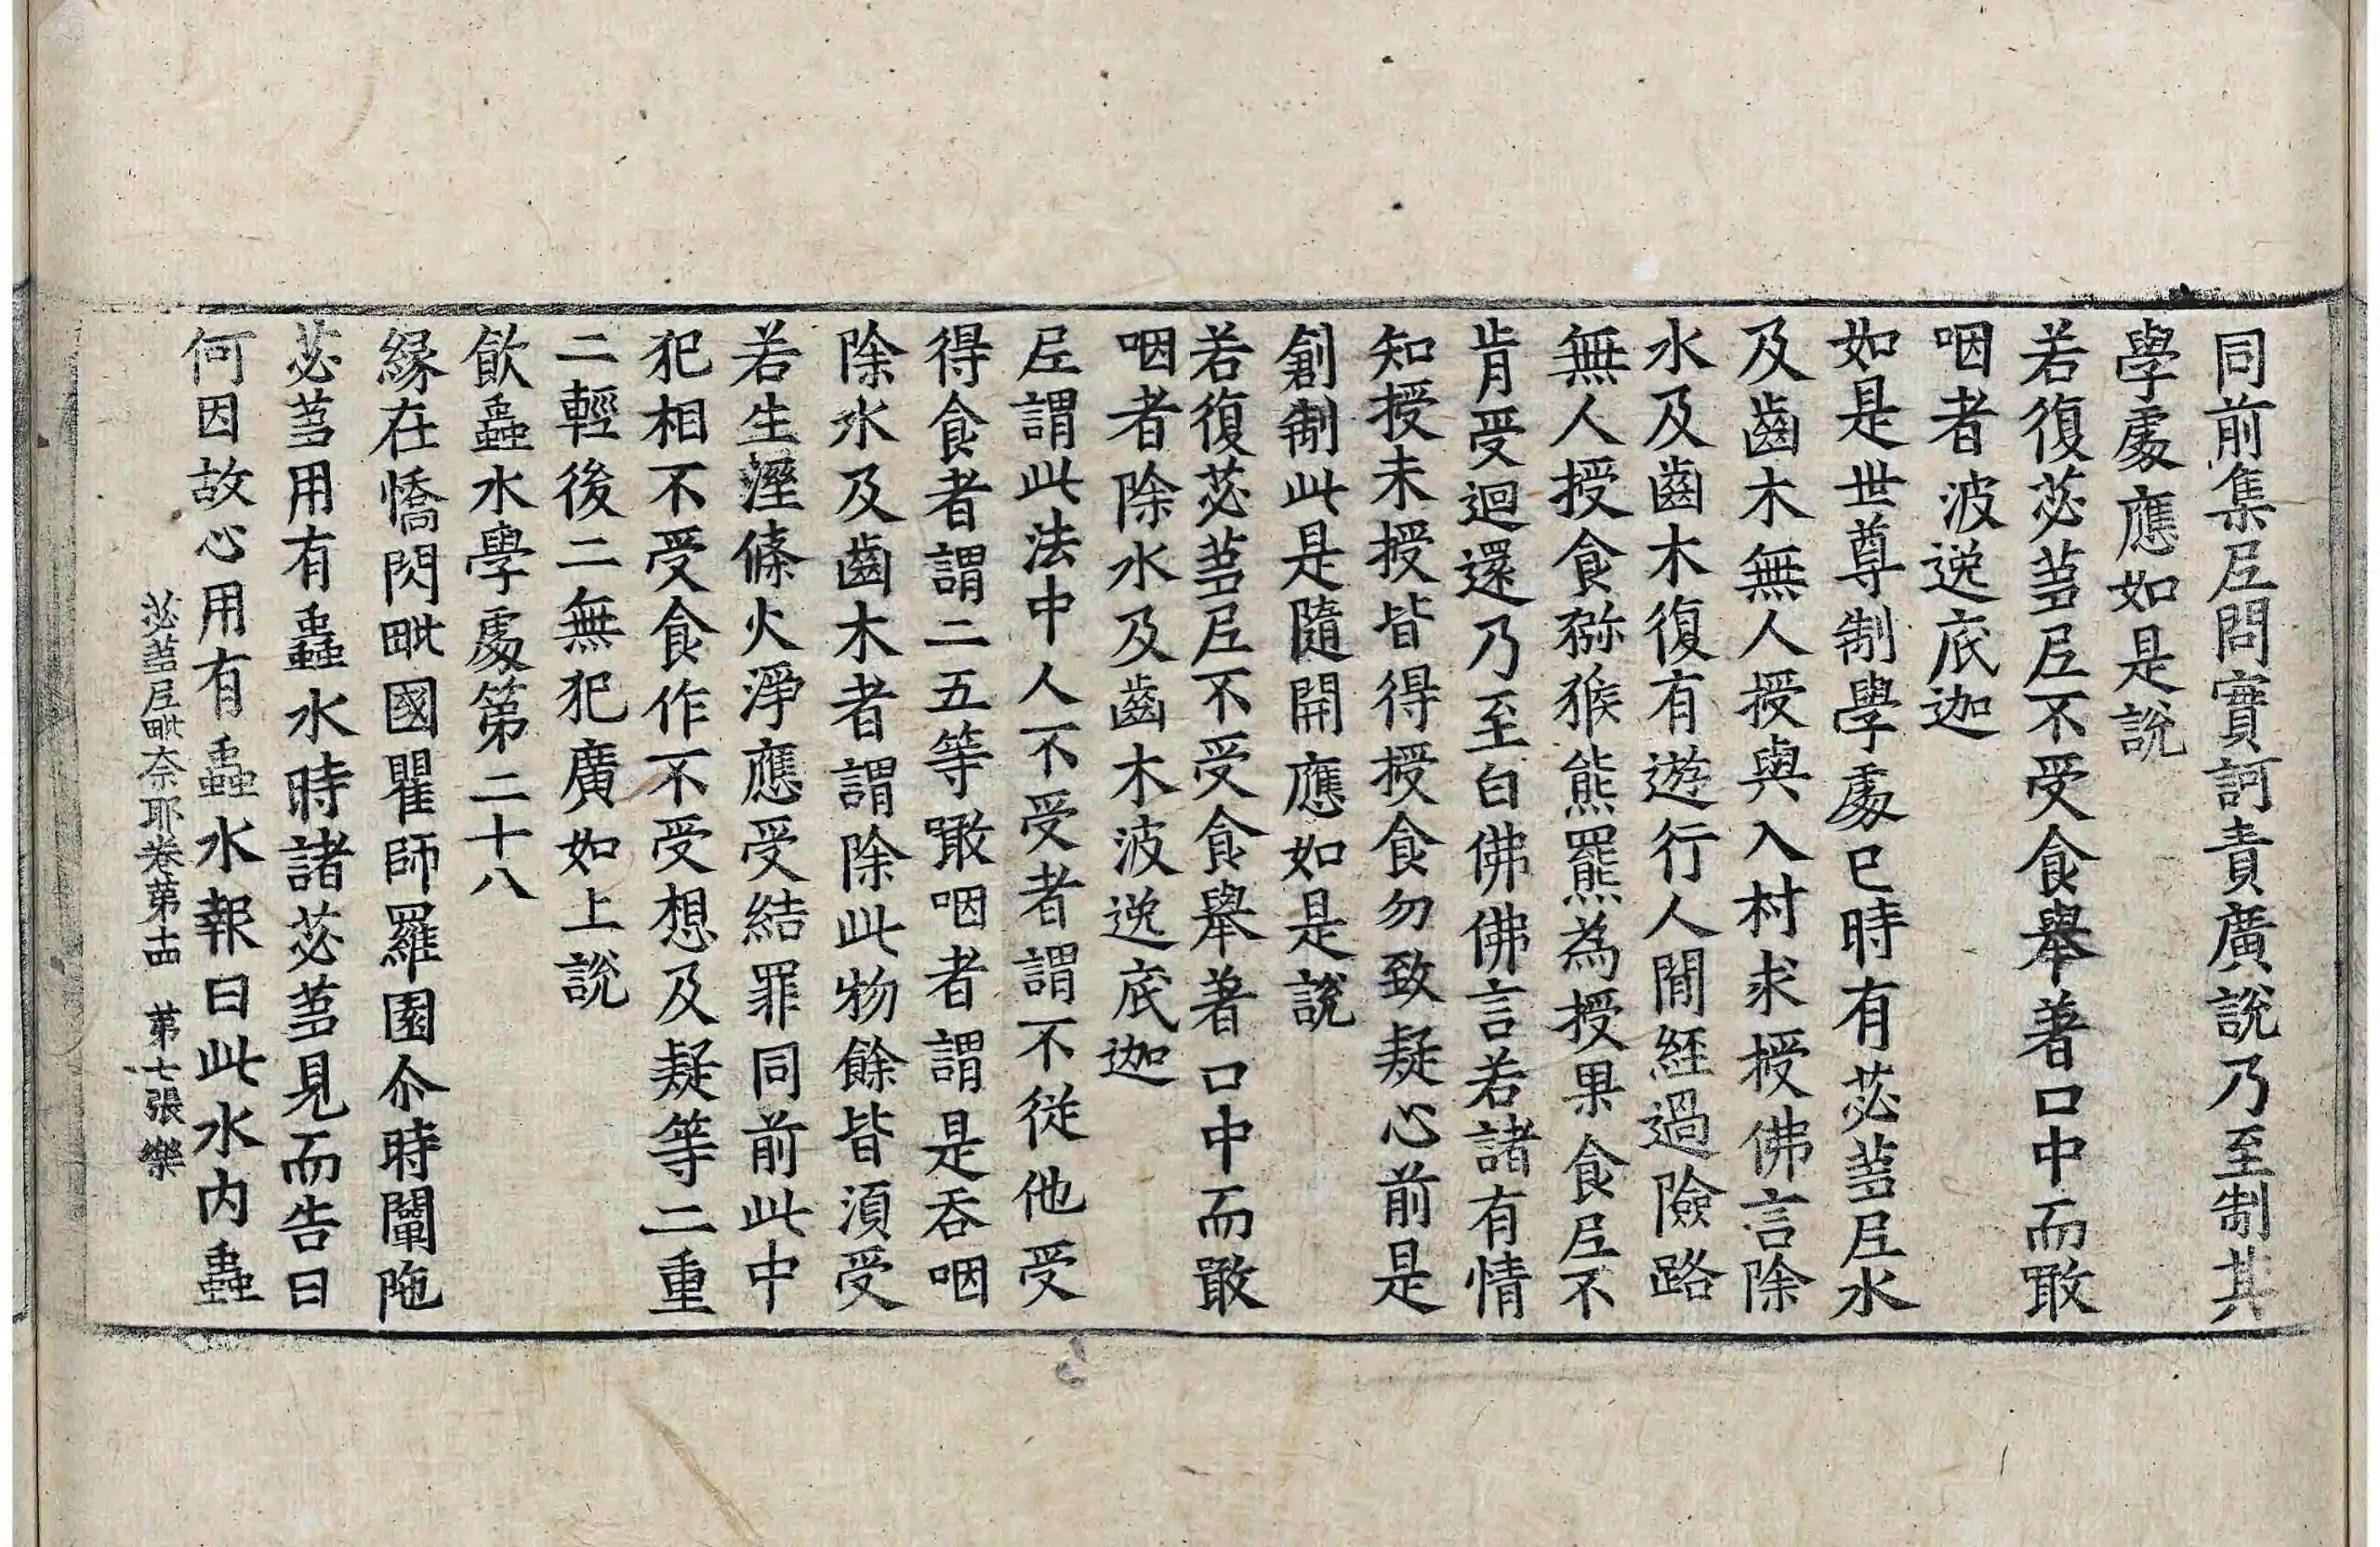 同前集尼問實訶責廣說乃至制其
學處應如是說
若復苾蒭尼不受食舉著口中而噉
咽者波逸底迦
如是世尊制學處已時有苾蒭尼水
及齒木無人授與入村求授佛言除
水及齒木復有遊行人間經過險路
無人授食獼猴熊羆為授果食尼不
肯受迴還乃至白佛佛言若諸有情
知授未授皆得授食勿致疑心前是
創制此是隨開應如是說
若復苾蒭尼不受食舉著口中而噉
咽者除水及齒木波逸底迦
尼謂此法中人不受者謂不從他受
得食者謂二五等噉咽者謂是吞咽
除水及齒木者謂除此物餘皆須受
若生溼條火淨應受結罪同前此中
犯相不受食作不受想及疑等二重
二輕後二無犯廣如上說
飲蟲水學處第二十八
緣在憍閃毗國瞿師羅園尒時闡陁
苾蒭用有蟲水時諸苾蒭見而告曰
何因故心用有蟲水報曰此水內蟲
苾蒭尼毗奈耶卷第十四 第七張 樂